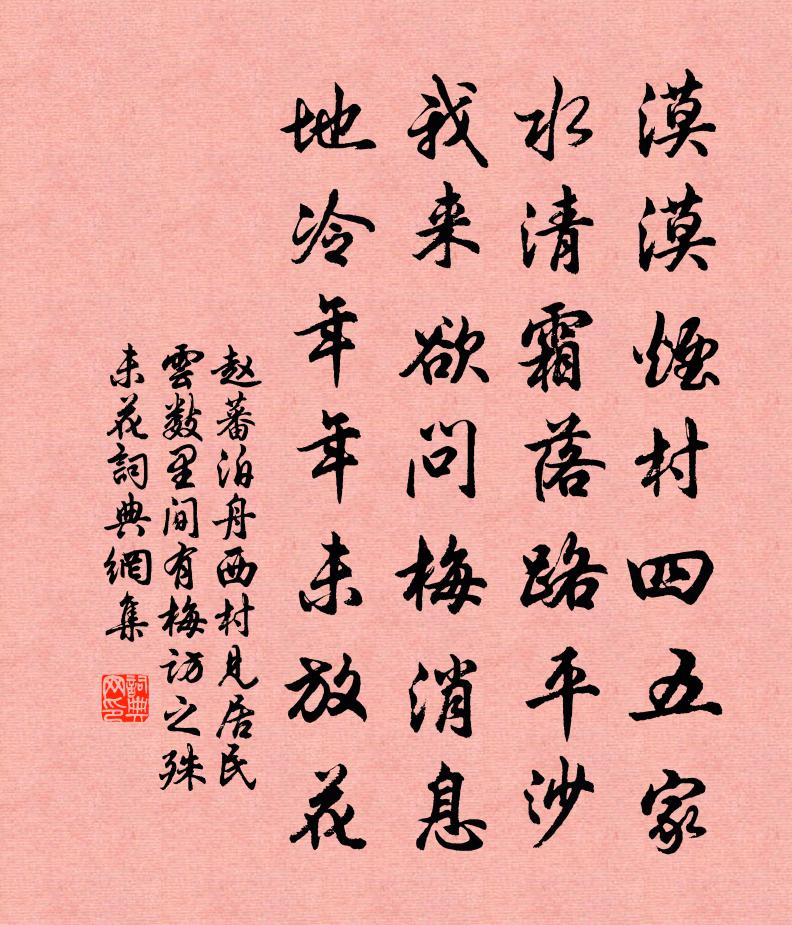 漠漠煙村四五家
水清霜落路平沙
我来欲问梅消息
地冷年年未放花
赵蕃泊舟西村見居民
雲数里间有梅访之殊
未花詞典網集
詞典
网印